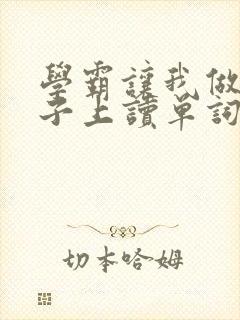 學霸讓我做
子上讀單詞
切本哈姆